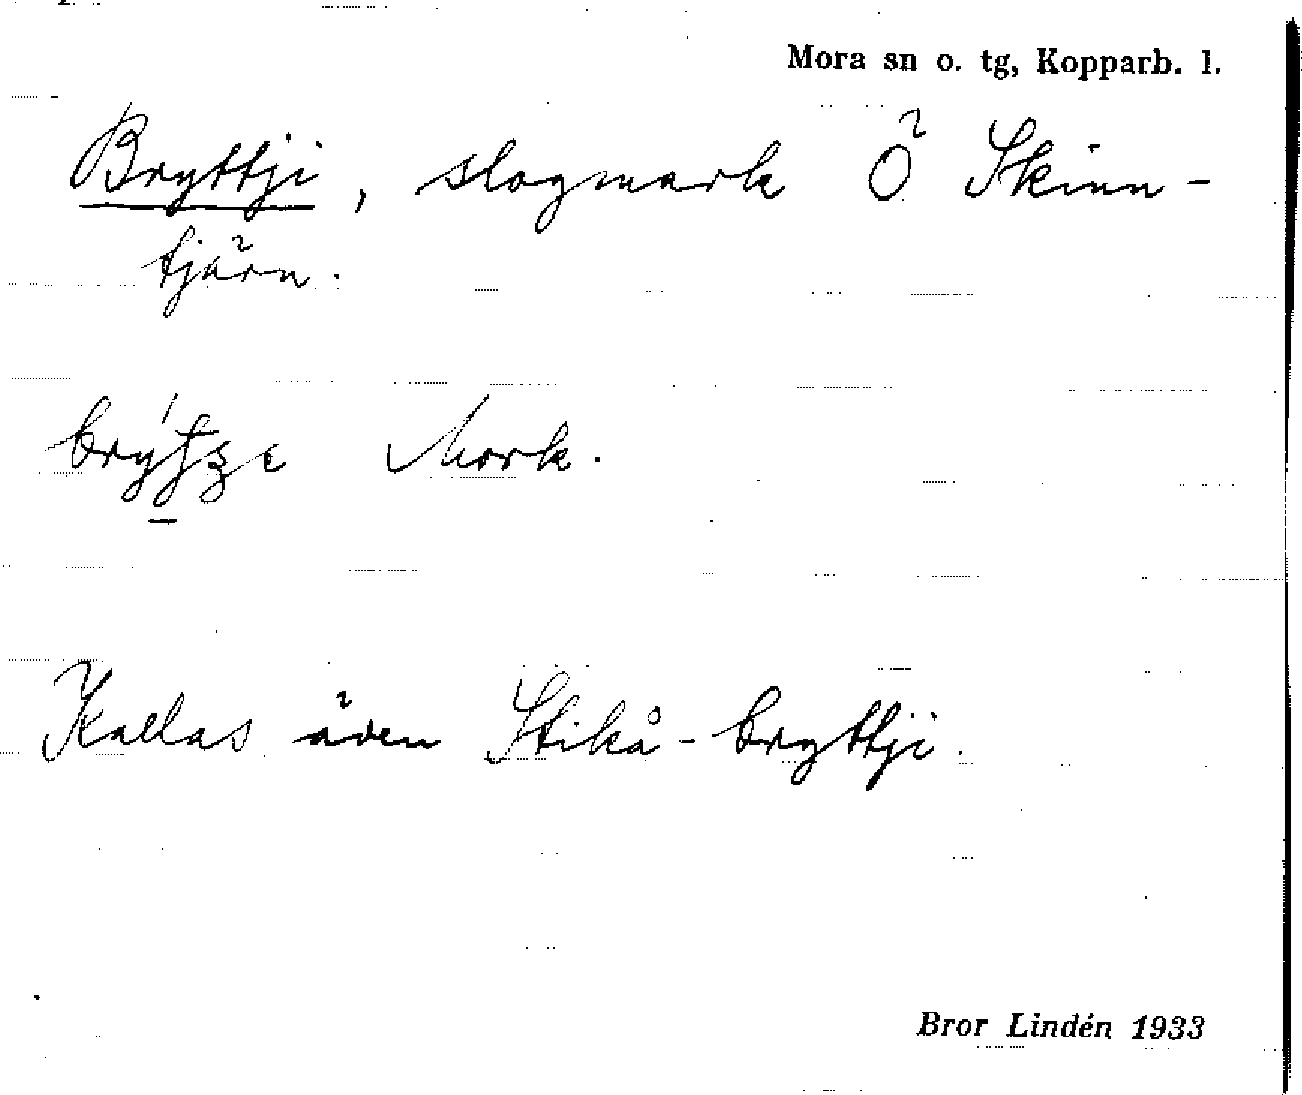 Mora sn o. tg, Kopparb. l.
Bryttji, slogmark Ö Skinn-
tjärn.
Mork.
Kallas även Stikå-bryttji.
Bror Lindén 1933